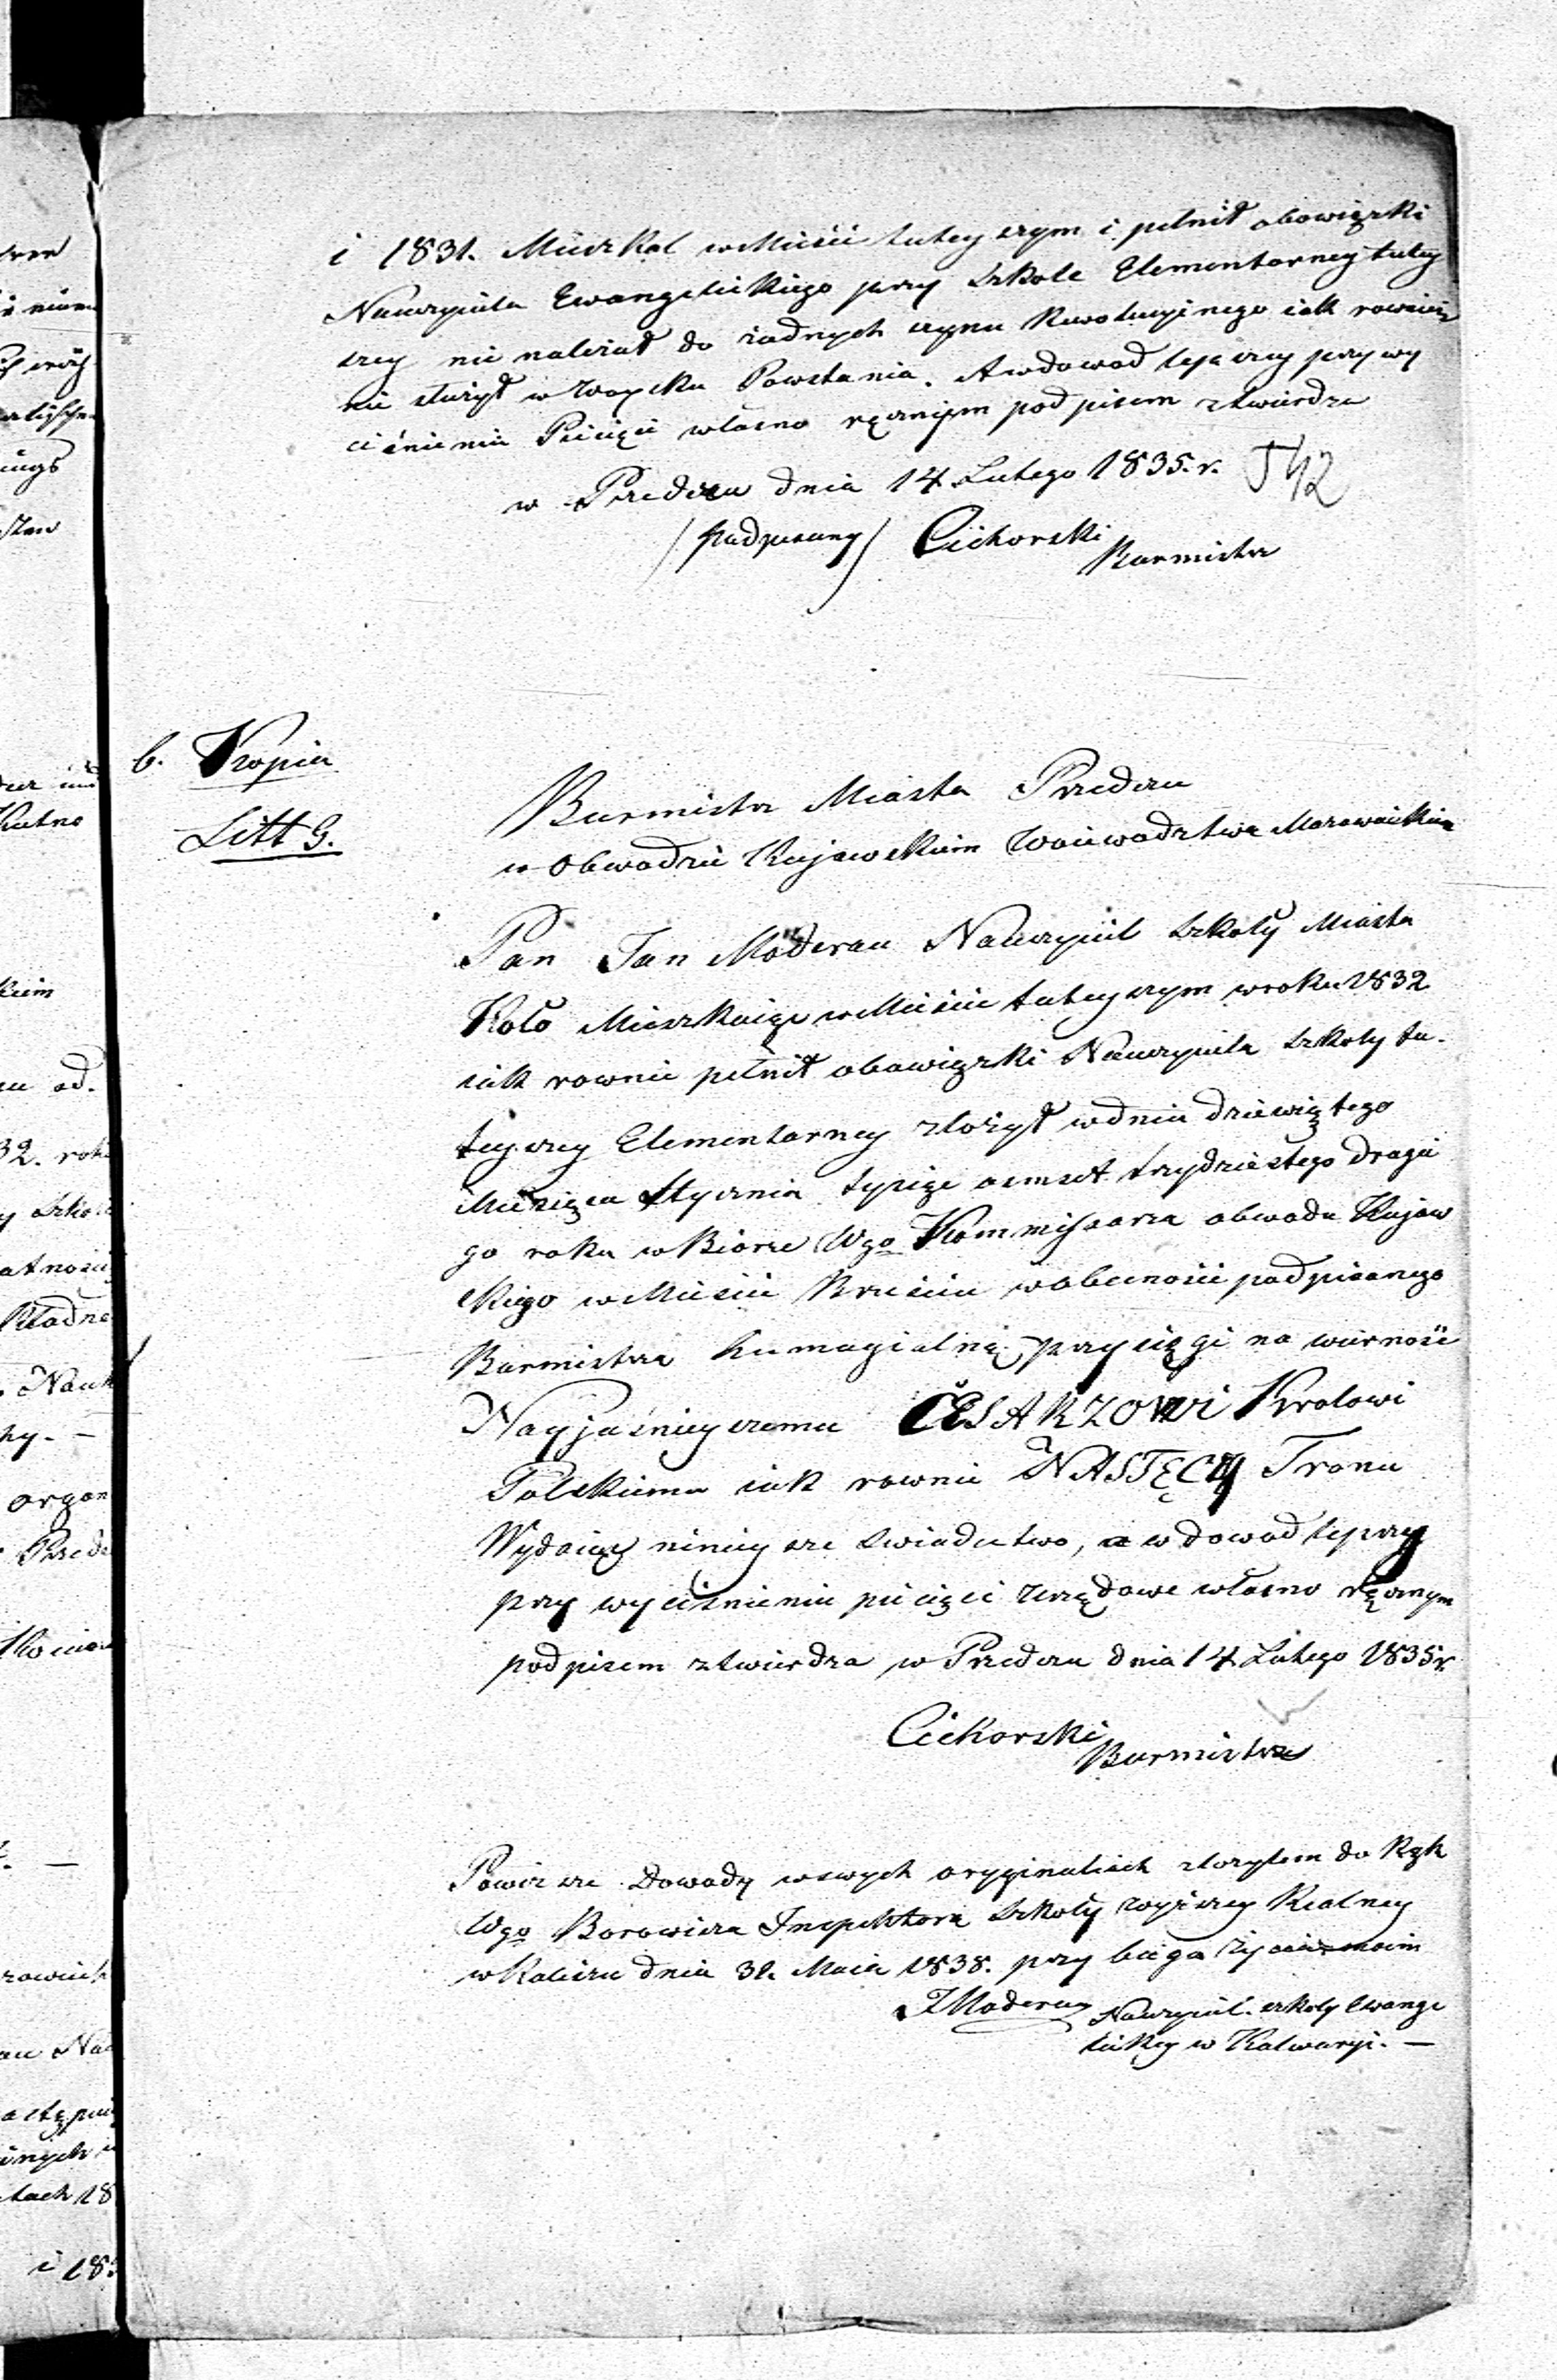 i 1831. Mieszkał w Mieście tuteyszym i pełnił obowiązki
Nauczyciela Ewangelickiego przy szkole Elementarney tutey
szey nie należał do żadnych czynu Rewolucyinego iak rownież
nie służył w Woysku Powstania. A w dowod tego przy wy
ciśnieniu Pieczęci własno ręcznym podpisem stwierdza
w Przedczu dnia 14 Lutego 1835. r.
542
/podpisany/ Cichorski
Burmistrz
6. Kopia
Litt G.
Burmistrz Miasta Przedcza
w Obwodzie Kujawskiem Woiewodztwa Mazowieckim
Pan Jan Moderau Nauczyciel szkoły Miasta
Koło Mieszkaiąc w Mieście tuteyszym w roku 1832
iak rownie pełnił obowiązki Nauczyciela szkoły tu-
teyszey Elementarney złożył w dniu dziewiątego
Miesiąca Stycznia tysiąc osmset trzydziestego drugie
go roku w Biorze Wgo Kommissarza obwodu Kujaw
skiego w Mieście Brześciu w obecności podpisanego
Burmistrza Homagialną przysięgi na wierność
Nayjaśnieyszemu CESARZOWI Krolowi
Polskiemu iak rownie NASTĘCY Tronu
Wydaiąc ninieysze świadectwo, a w dowod
przy wyciśnieniu pieczęci Urzędowe własno ręcznym
podpisem stwierdza w Przedczu dnia 14 Lutego 1835 r.
Cichorski
Burmistrz
Powisze Dowody w swych oryginaliach złożyłem do Rąk
Wgo Borowicza Inspektora Szkoły Wyższey Realney
w Kaliszu dnia 31. Maia 1838. przy
JModerau Nauczyciel szkoły Ewange
lickiey w Kalwaryi. —